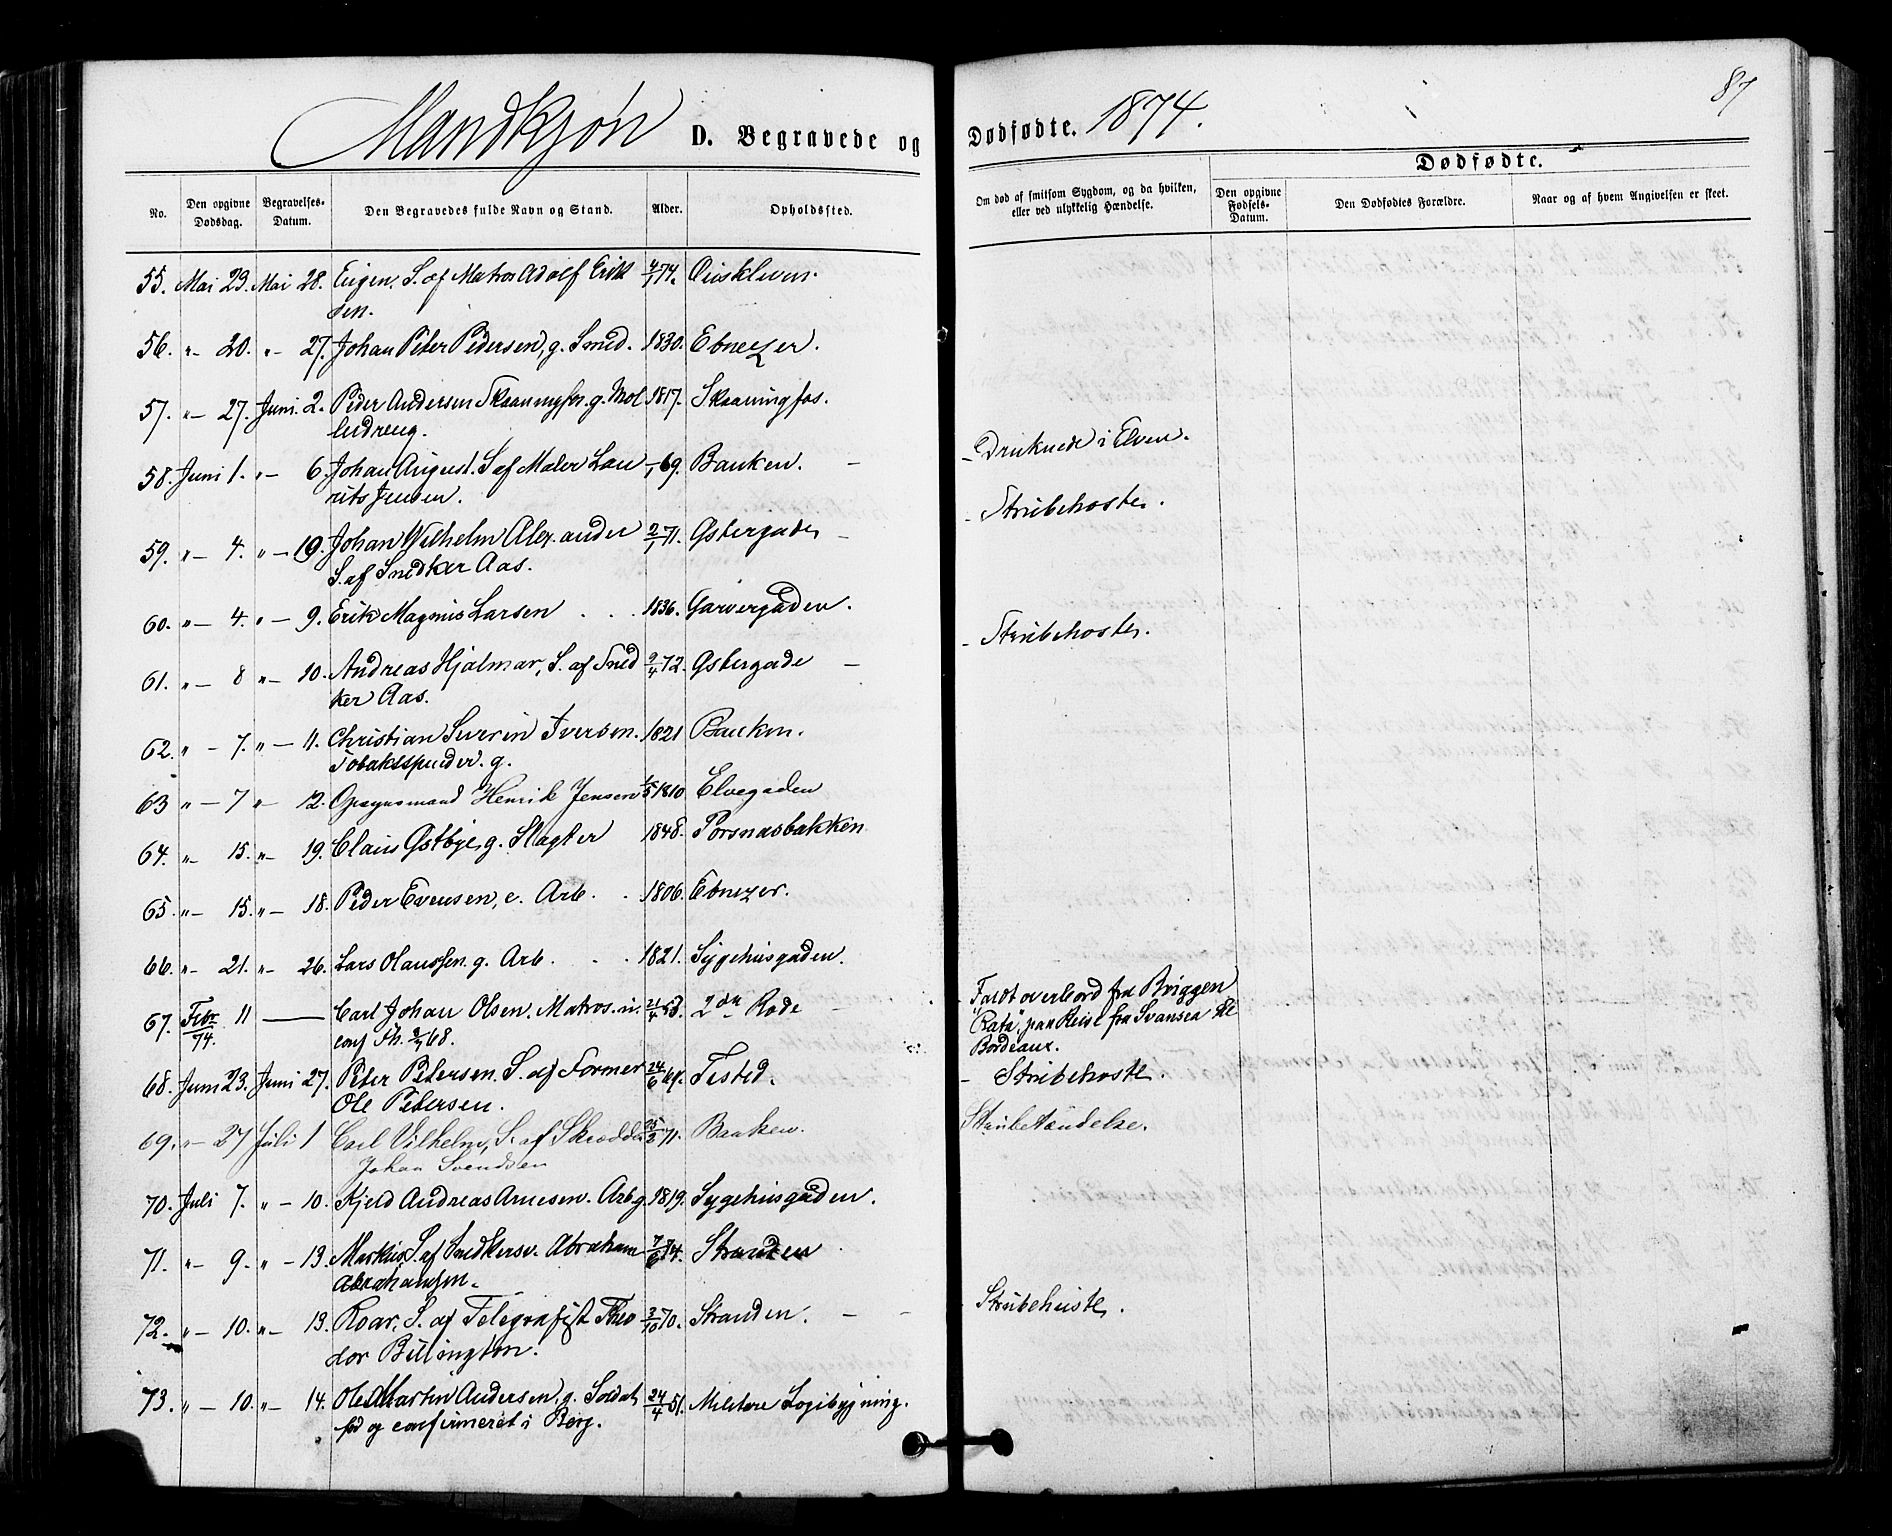 Mandkjøn D. Begravede og Dødfødte. 1874. 87
No. Den opgivne Dødsdag. Begravelses-Datum. Den Begravedes fulde Navn og Stand. Alder. Opholdssted. Om død af smitsom Sygdom, og da hvilken, eller ved ulykkelig Hændelse. Dødfødte. Den opgivne Fødsels-Datum. Den Dødfødtes Forældre. Naar og af hvem Angivelsen er skeet.
55. Mai 23. Mai 28. Eugen. S. af Matros Adolf Erik 4/1 74.
sen.
56. "— 20. "— 27. Johan Peter Pedersen, g. Smed. 1830. Ebnezer.
57. "— 27. Juni. 2. Peder Andersen Skaaningfos. g. Møl 1817. Skaaningfos.
ledreng. - Druknede i Elven.
58. Juni 1. "— 6. Johan August. S af Maler Lau 69. Banken. —
rits Jensen. - Strubehoste.
59. "— 4. "— 19. Johan Wilhelm Alexander 2/1 71. Østergade —
S. af Snedker Aas.
60. "— 4. "— 9. Erik Magnus Larsen . . . 1836. Garvergaden.
- Strubehoste.
61. "— 8 "— 10. Andreas Hjalmar, S. af Sned 9/4 72. Østergade —
ker Aas.
62. "— 7. "— 11. Christian Severin Iversen. 1821 Banken.
Tobaksspinder. g.
63 "— 7 "— 12. Opsynsmand Henrik Jensen 1/5 1810 Elvegaden
64. "— 15. "— 19. Claus Østbye, g. Slagter 1848. Porsnæsbakken
65. "— 15. "— 18. Peder Evensen, e. Arb. . 1806. Ebnezer.
66. "— 21. "— 26. Lars Olaussen. g. Arb. . . 1821. Sygehusgaden.
67. Febr 74. 11 — Carl Johan Olsen. Matros. u. 21/4 53. 2den Rode — - Faldt overbord fra Briggen
conf Fh. 68. "Rata", paa Reise fra Svansea til
Bordeaux.
68. Juni 23. Juni 27. Peter Petersen. S. af Former 24/6 64. Tisted. - Strubehoste.
Ole Petersen.
69. "— 27 Juli 1 Carl Vilhelm, S. af Skrædder 71. Banken. Strubetændelse.
Johan Svendsen
70. Juli 7. "— 10. Kjeld Andreas Arnesen. Arb g. 1819. Sygehusgaden.
71. "— 9. "— 13. Markus S. af Snedkersv. Abraham 7/6 74. Stranden
Abrahamsen.
72. "— 10. "— 13. Roar, S. af Telegrafist Theo 3/10 70. Stranden. — - Strubehoste.
dor Billington.
73. "— 10. "— 14. Ole Martin Andersen, g. Soldat, 24/4 51. Militære Logibygning.
fød og confirmeret i Berg.